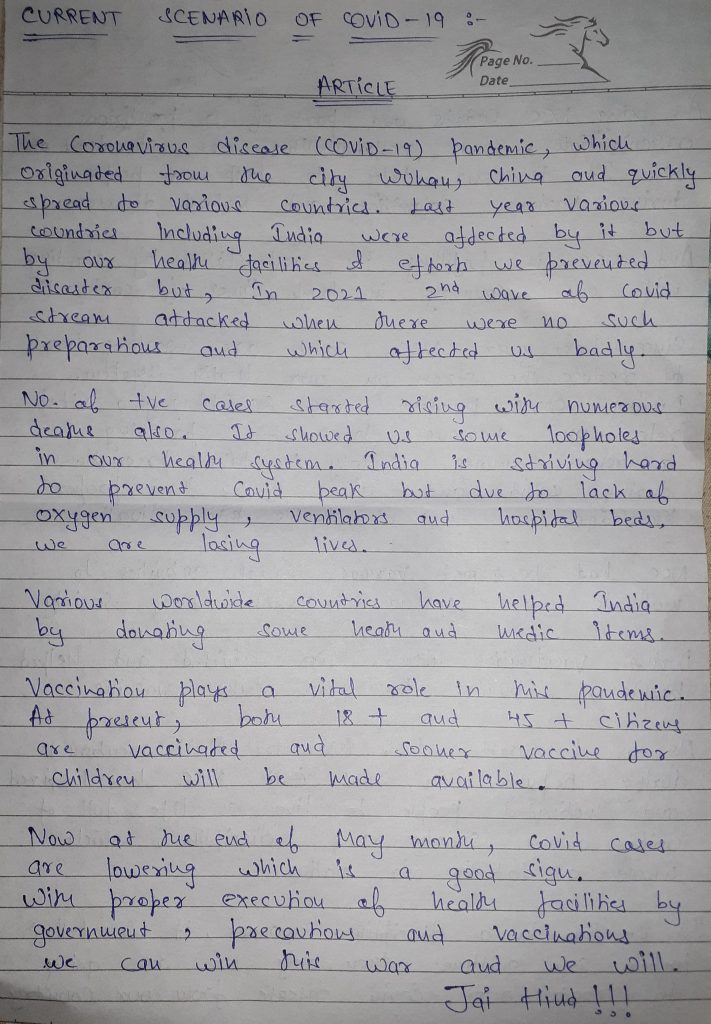 CURRENT SCENARIO OF COVID-19 :-
Page No.
Date
ARTICLE
The Coronavirus disease (COVID-19) pandemic, which
originated from the city Wuhan, China and quickly
spread to various countries. Last year various
countries Including India were affected by it but
by our health facilities & efforts we prevented
disaster but, In 2021 2nd wave of Covid
stream attacked when there were no such
preparations and which affected us badly.
No. of +ve cases started rising with numerous
deaths also. It showed us some loopholes
in our health system. India is striving hard
to prevent Covid peak but due to lack of
oxygen supply, ventilators and hospital beds,
we are losing lives.
Various worldwide countries have helped India
by donating some heath and medic items.
Vaccination plays a vital role in this pandemic.
At present, both 18 + and 45 + citizens
are vaccinated and sooner vaccine for
children will be made available.
Now at the end of May month, covid cases
are lowering which is a good sign.
With proper execution of health facilities by
government, precautions and vaccinations
we can win this war and we will.
Jai Hind !!!